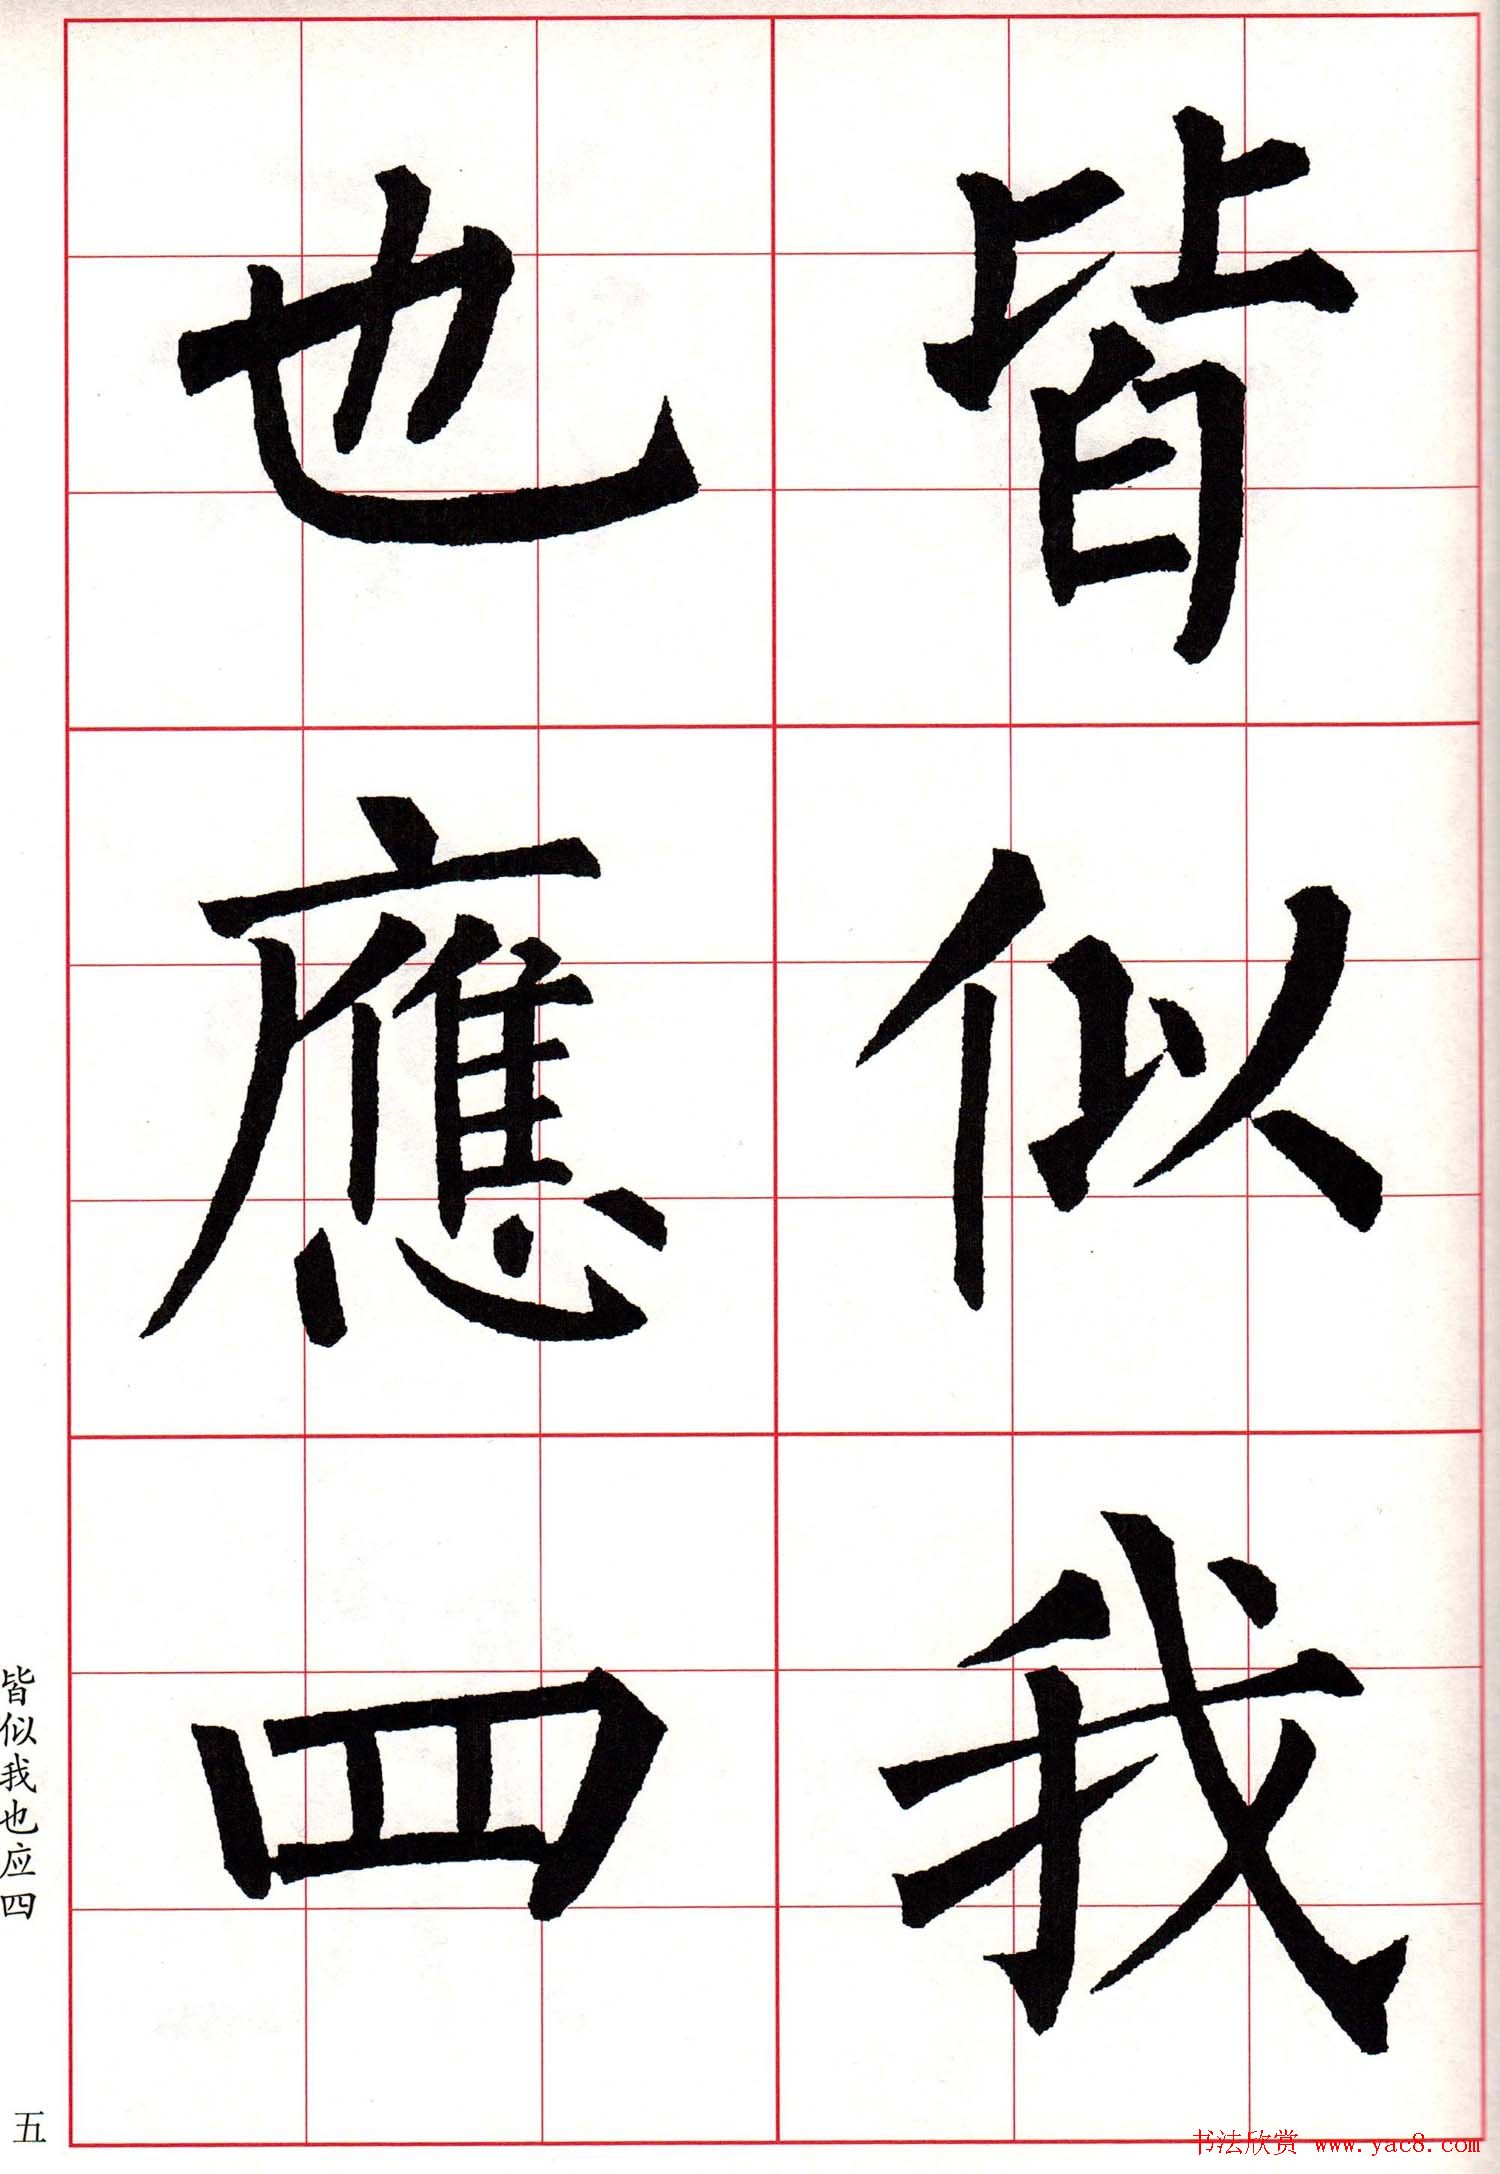 皆似我
也應四
皆似我也应四
五
书法欣赏 www.yac8.com